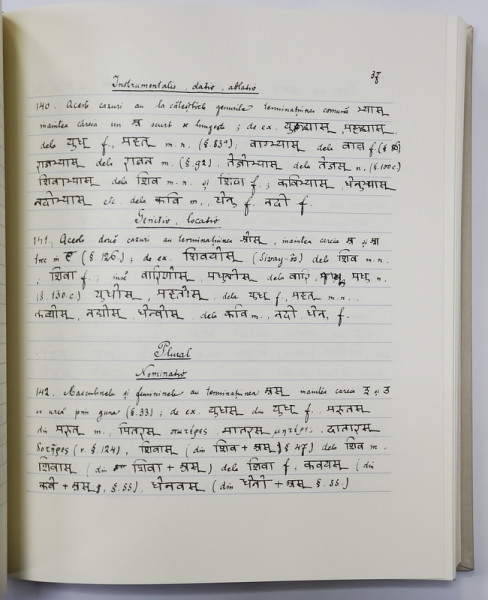 37
Instrumentalis, dativ, ablativ
140. Aceste cazuri au la câteștrele genurile terminațiunea comună भ्याम्
naintea căreia un अ scurt se lungește; de ex. युद्भ्याम् मरुद्भ्याम्
dela युध् f, मरुत् m. n. (§. 83ª); वाग्भ्याम् dela वाच् f (§
राजभ्याम् dela राजन् m. (§. 92). तेजोभ्याम् dela तेजस् n. (§. 100.c)
शिवाभ्याम् dela शिव m. n. și शिवा f.; कविभ्याम् धेनुभ्याम्
नदीभ्याम् etc. dela कवि m., धेनु f. नदी f.
Genitiv, locativ
141. Aceste două cazuri au terminațiunea ओस्, naintea căreia अ și आ
trec in ए (§. 126); de ex. शिवयोस् (Sivay-ōs) dela शिव m n.
; शिवा f.; însă वारिणोस्, मधुनोस् dela वारि, मधु n.
(§. 130.c.) युधोस्, मरुतोस्, dela युध् f., मरुत् m. n.
कव्योस्, नद्योस्, धेन्वोस् dela कवि m., नदी, धेनु f.
Plural
Nominativ
142. Masculinele și femininele au terminațiunea अस् naintea căreia इ și उ
se urcă prin guna (§. 33); de ex. युधस् din युध् f., मरुतस्
din मरुत् m., पितरस् πατέρες मातरस् μητέρες, दातारस्
δοτῆρες (v. §. 124), शिवास् (din शिव + अस् § 47) dela शिव m.
शिवास् (din शिवा + अस्) dela शिवा f, कवयस् (din
कवे + अस्, §. 55), धेनवस् (din धेनो + अस् §. 55.)